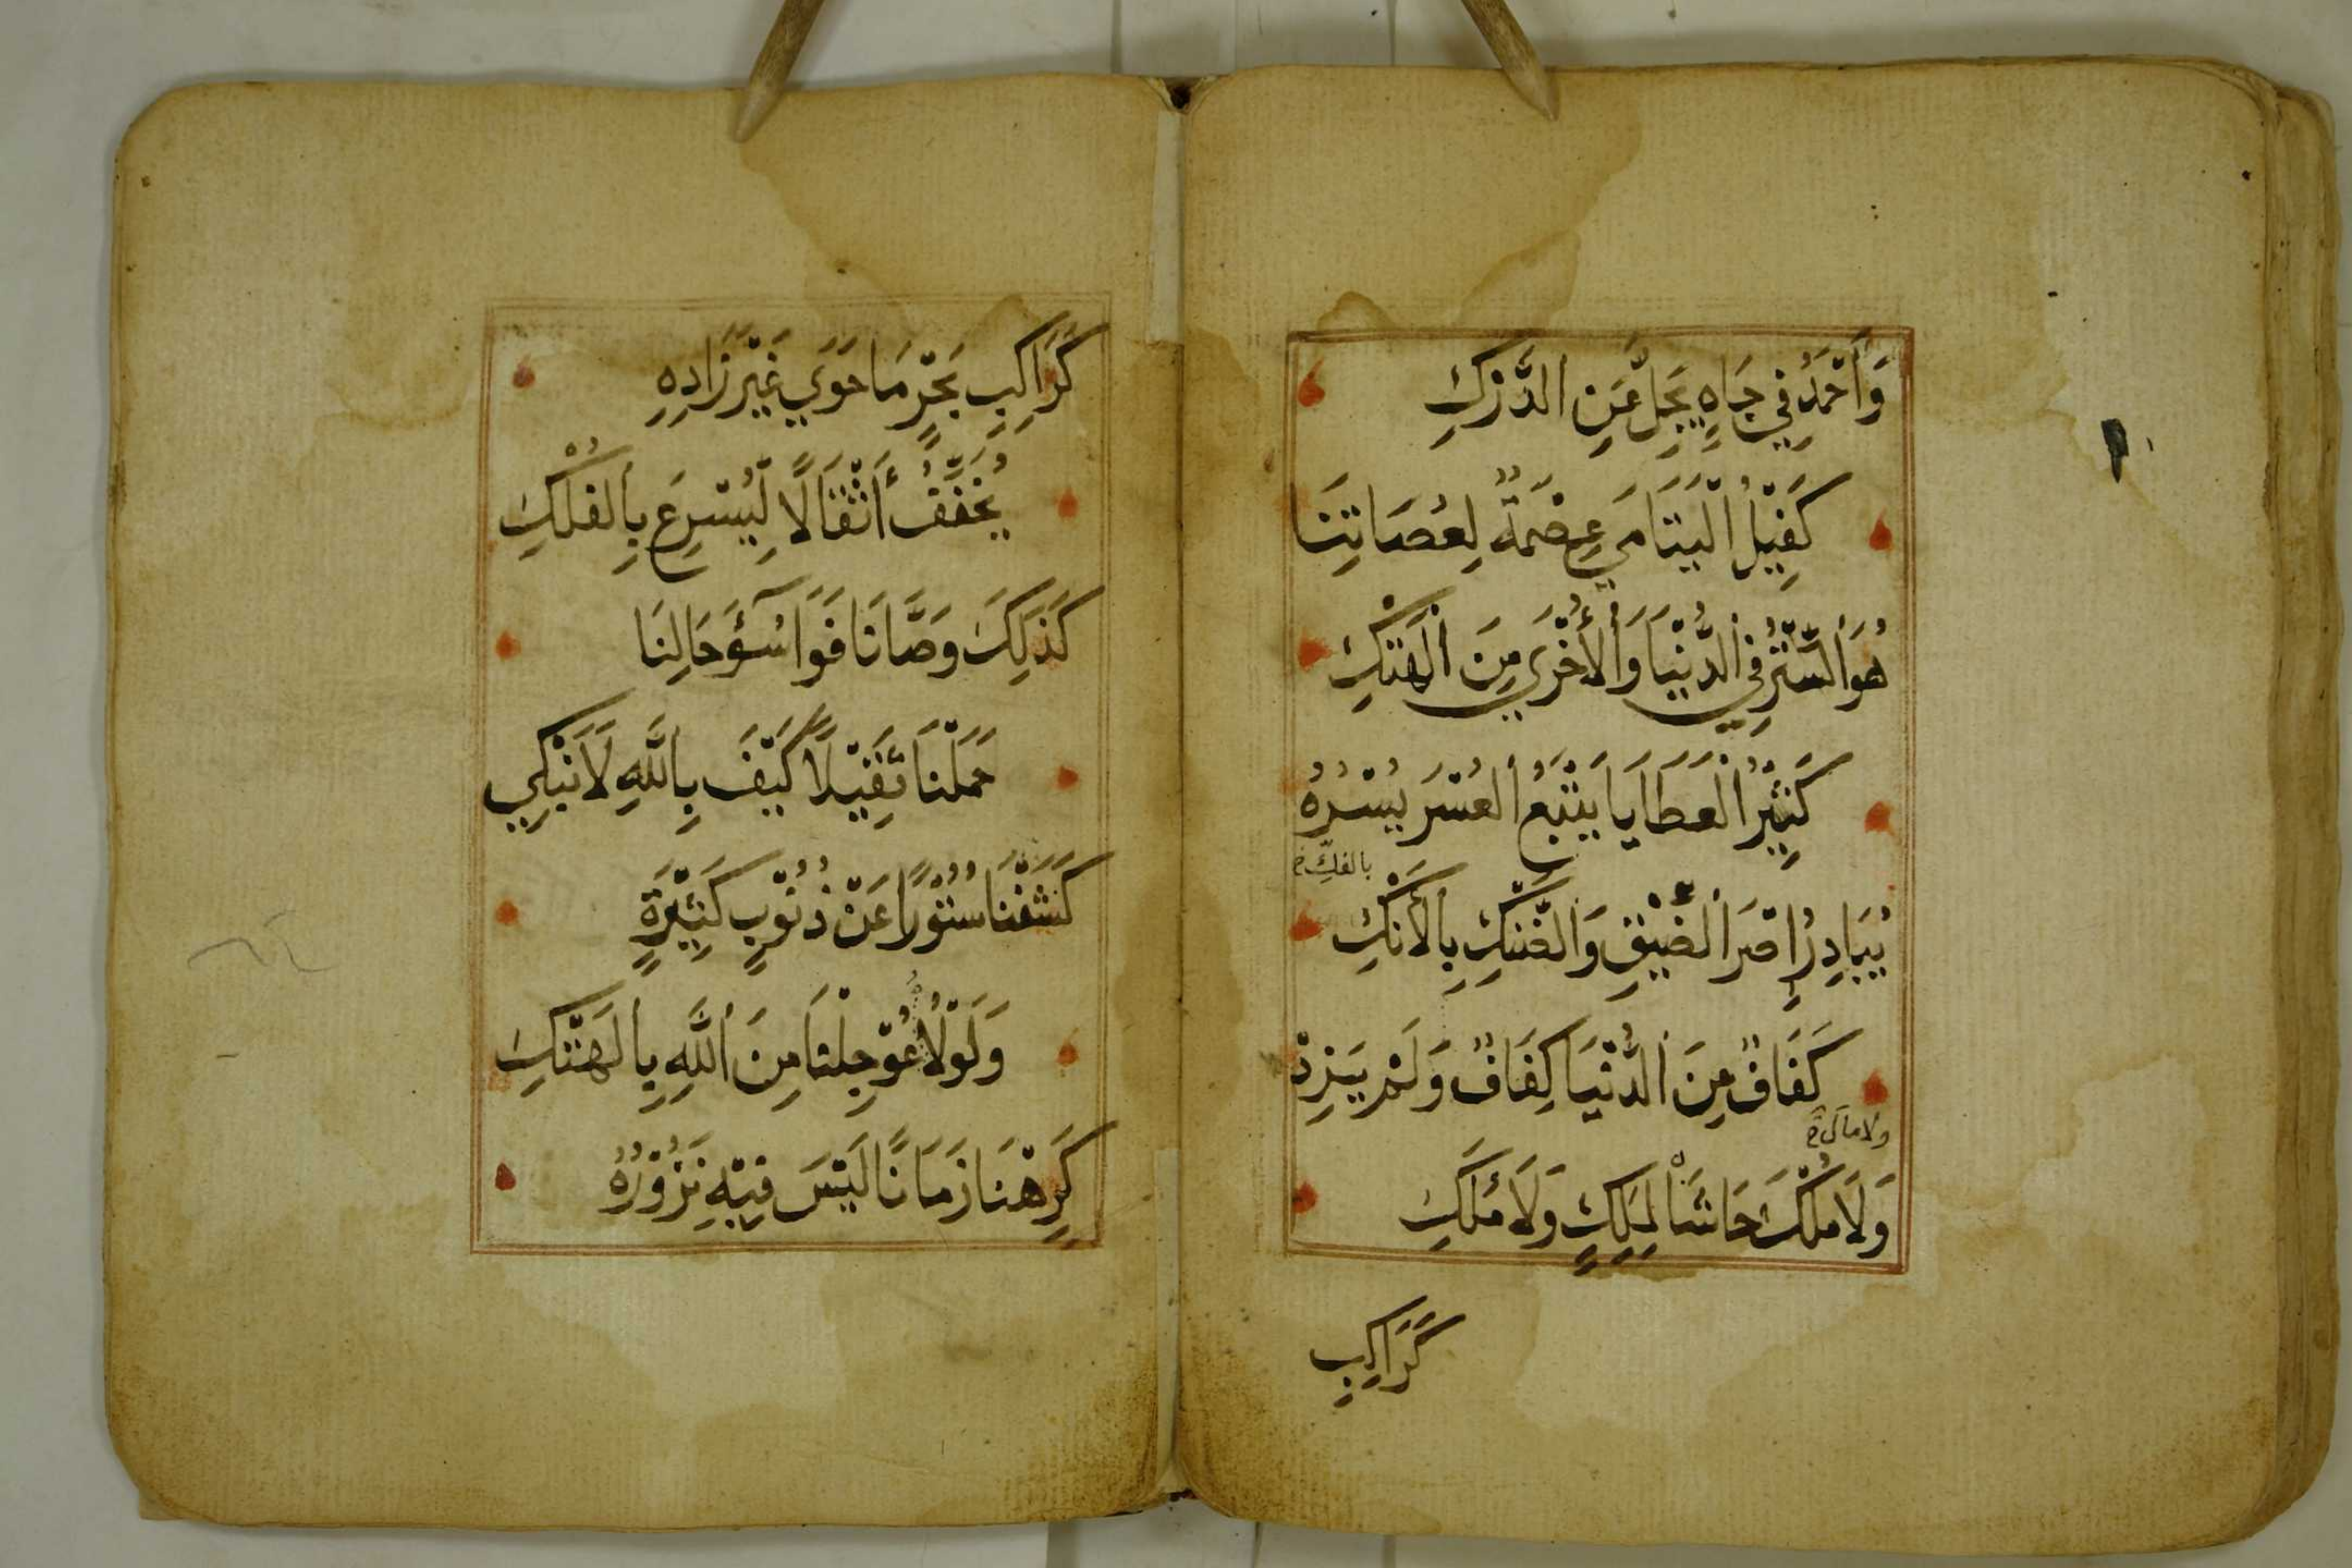 وَأَحْمَدُ فِي جَاهٍ يَجِلُّ عَنِ الدَّرْكِ
كَفِيْلُ الْيَتَامَي عِصْمَةٌ لِعُصَاتِنَا
هُوَ السِّتْرُ فِي الدُّنْيَا وَالْأُخْرَي مِنَ الْهَتْكِ
كَثِيْرُ الْعَطَايَا يَتْبَعُ الْعُسْرَ يُسْرُهُ
بالفك
يُبَادِرُ الضَّيْقِ وَالضَّنْكِ بِالْأَنْكِ
كَفَافٌ مِنَ الدُّنْيَا كِفَافٌ وَلَمْ يَزِدْ
ولا مال
وَلَا مُلْكَ حَاشَا لِمَلِكٍ وَلَا مَلَكِ
كَرَاكِبِ
كَرَاكِبِ بَحْرٍ مَا حَوَي غَيْرَ زَادِهِ
يُخَفِّفُ أَثْقَالًا لِيُسْرِعَ بِالْفُلْكِ
كَذَلِكَ وَصَّانَا فَوَا سُوْٓءَ حَالِنَا
حَمَلْنَا ثَقِيْلًا كَيْفَ بِاللَّهِ لَا نَبْكِي
كَشَفْنَا سُتُوْرًا عَنْ ذُنُوْبٍ كَثِيْرَةٍ
وَلَوْلَاهُ عُوْجِلْنَا مِنَ اللَّهِ بِالْهَتْكِ
كَرِهْنَا زَمَانًا لَيْسَ فِيْهِ نَزُوْرُهُ